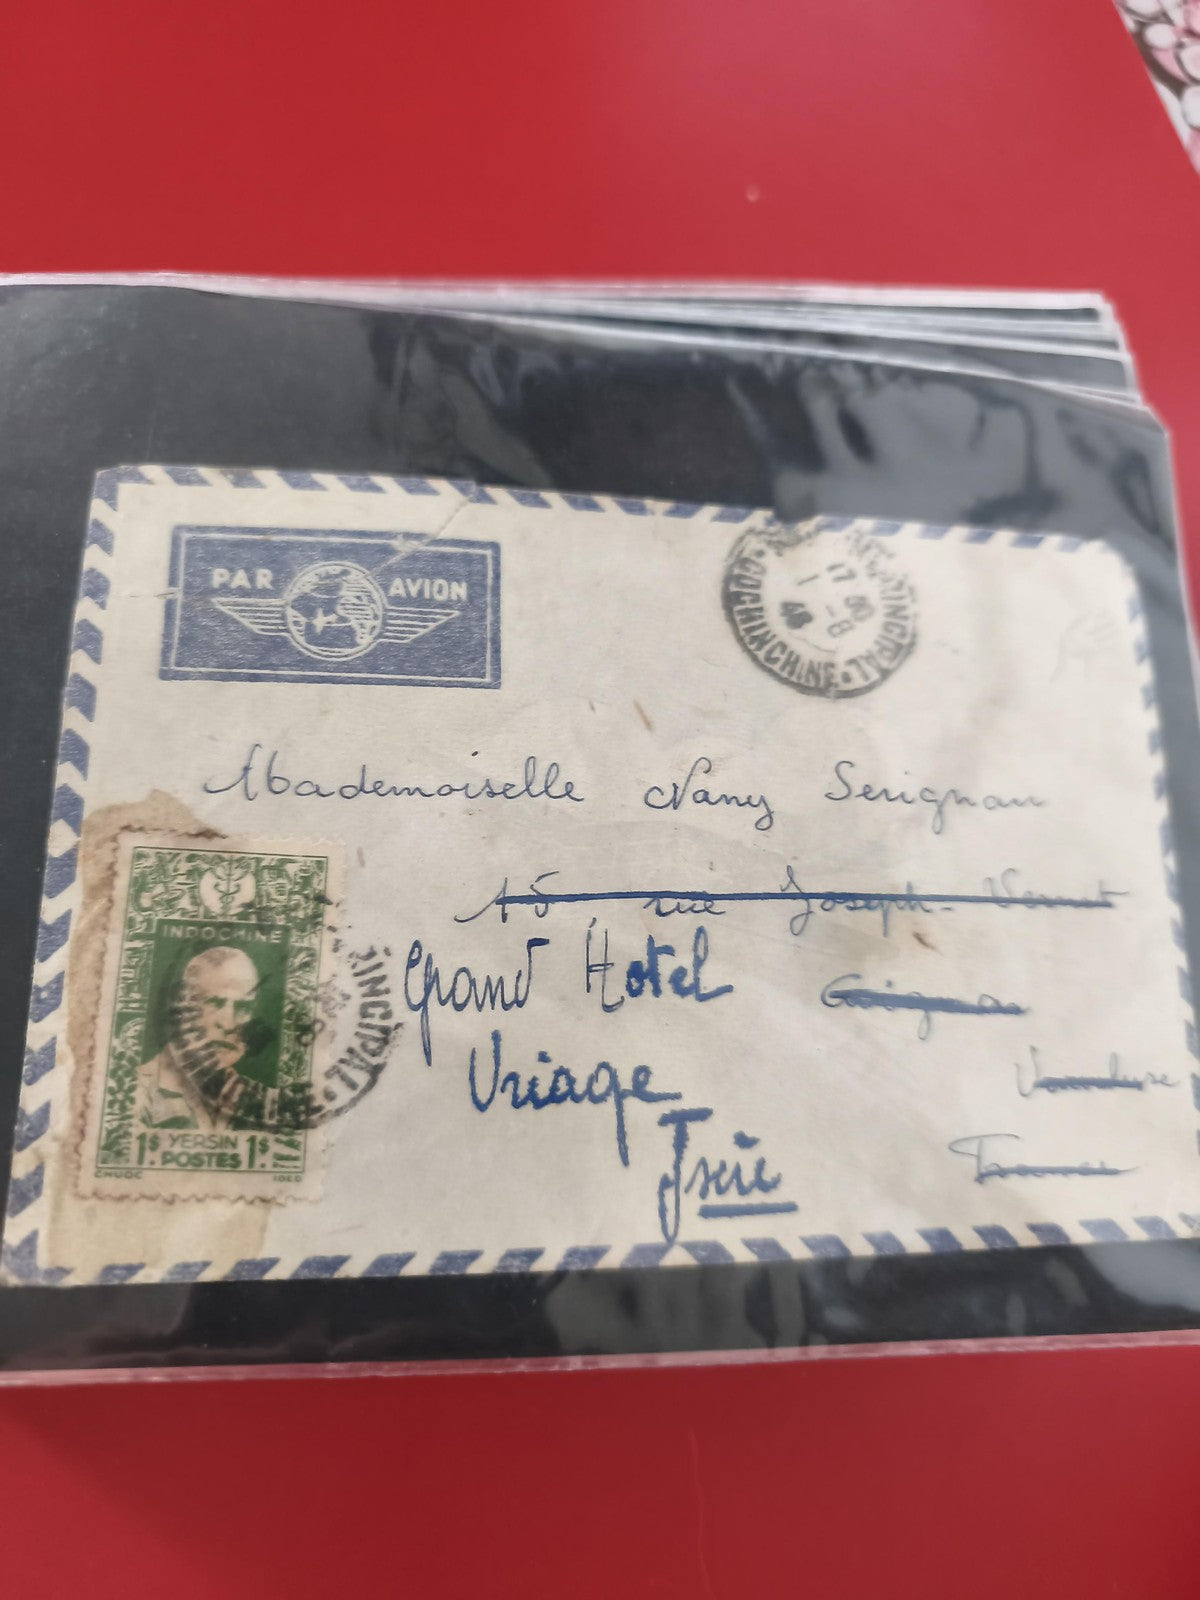 PAR AVION
PRINCIPAL • COCHINCHINE •
17 00
1 - 8
46
Mademoiselle Nany Serignan
15 rue Joseph-Vernet
Grand Hotel
Avignon
Uriage
Vaucluse
Isère
France
INDOCHINE
INCIPAL
1$ YERSIN 1$
POSTES
CHUOC IDEO